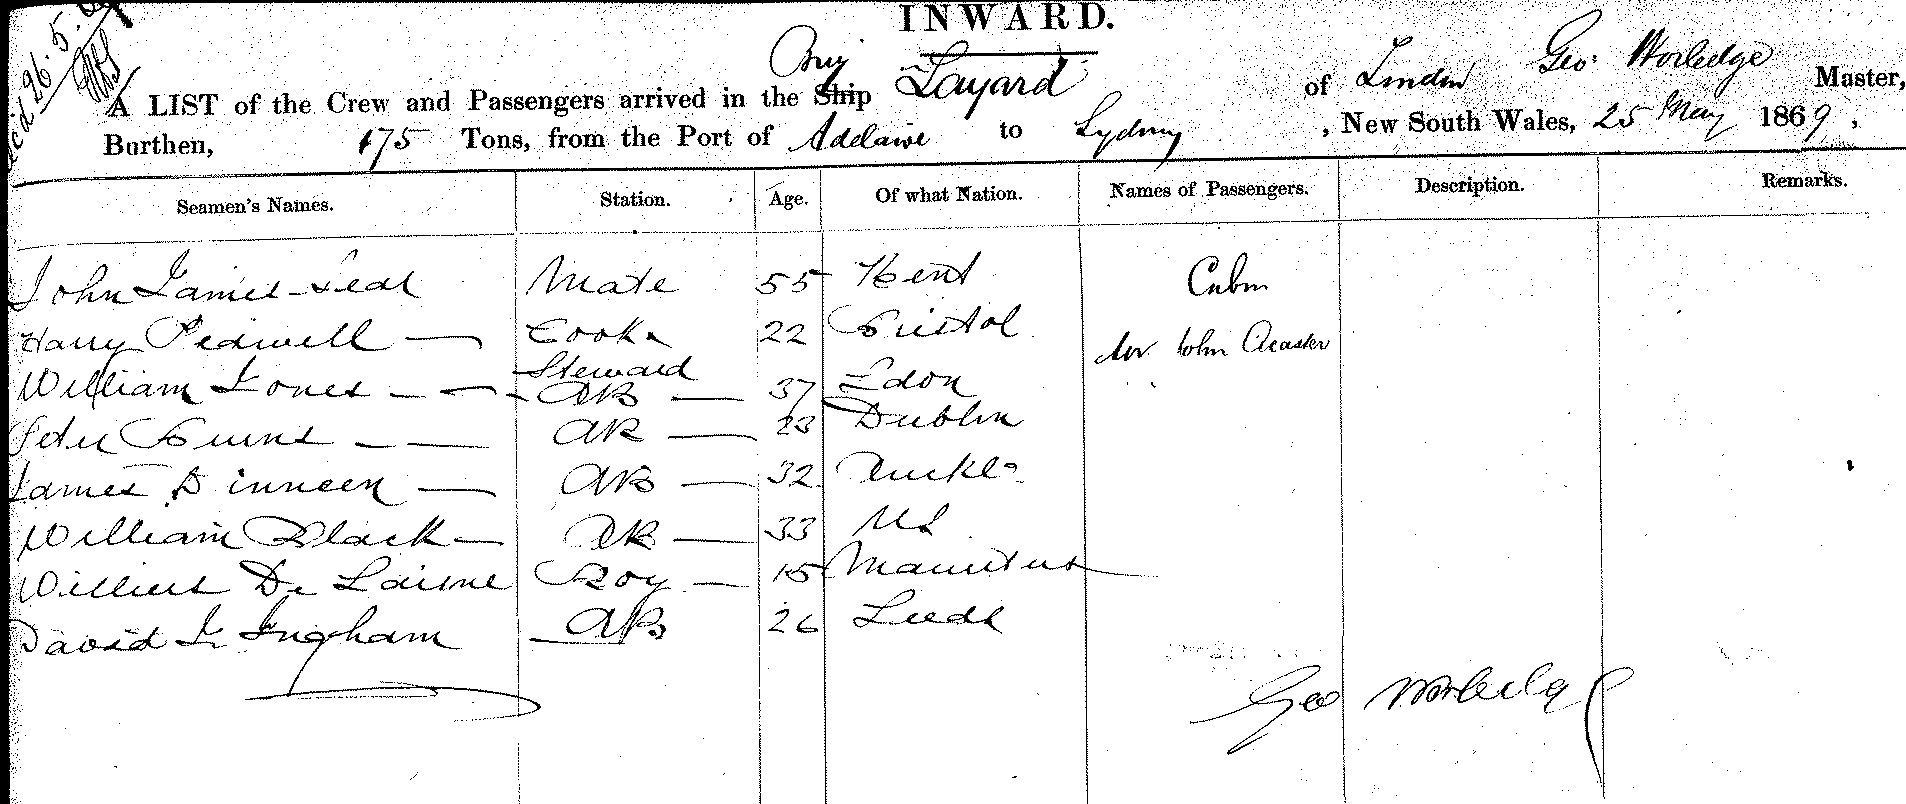 INWARD.
26.5.
A LIST of the Crew and Passengers arrived in the Ship Brig Layard of London Geo. Worledge Master,
Burthen, 175 Tons, from the Port of Adelaide to Sydney, New South Wales, 25 May 1869,
Seamen's Names. Station. Age. Of what Nation. Names of Passengers. Description. Remarks.
John James Seal Mate 55 Kent Cabin
Harry Pedwell Cook & Steward 22 Bristol Mr. John Acaster
William Jones AB 37 Ldon
Peter Burns AB 23 Dublin
James Dinneen AB 32 Auckld
William Black AB 33 US
De Boy 15 Mauritus
David J. Ingham AB 26 Leeds
Geo Worledge